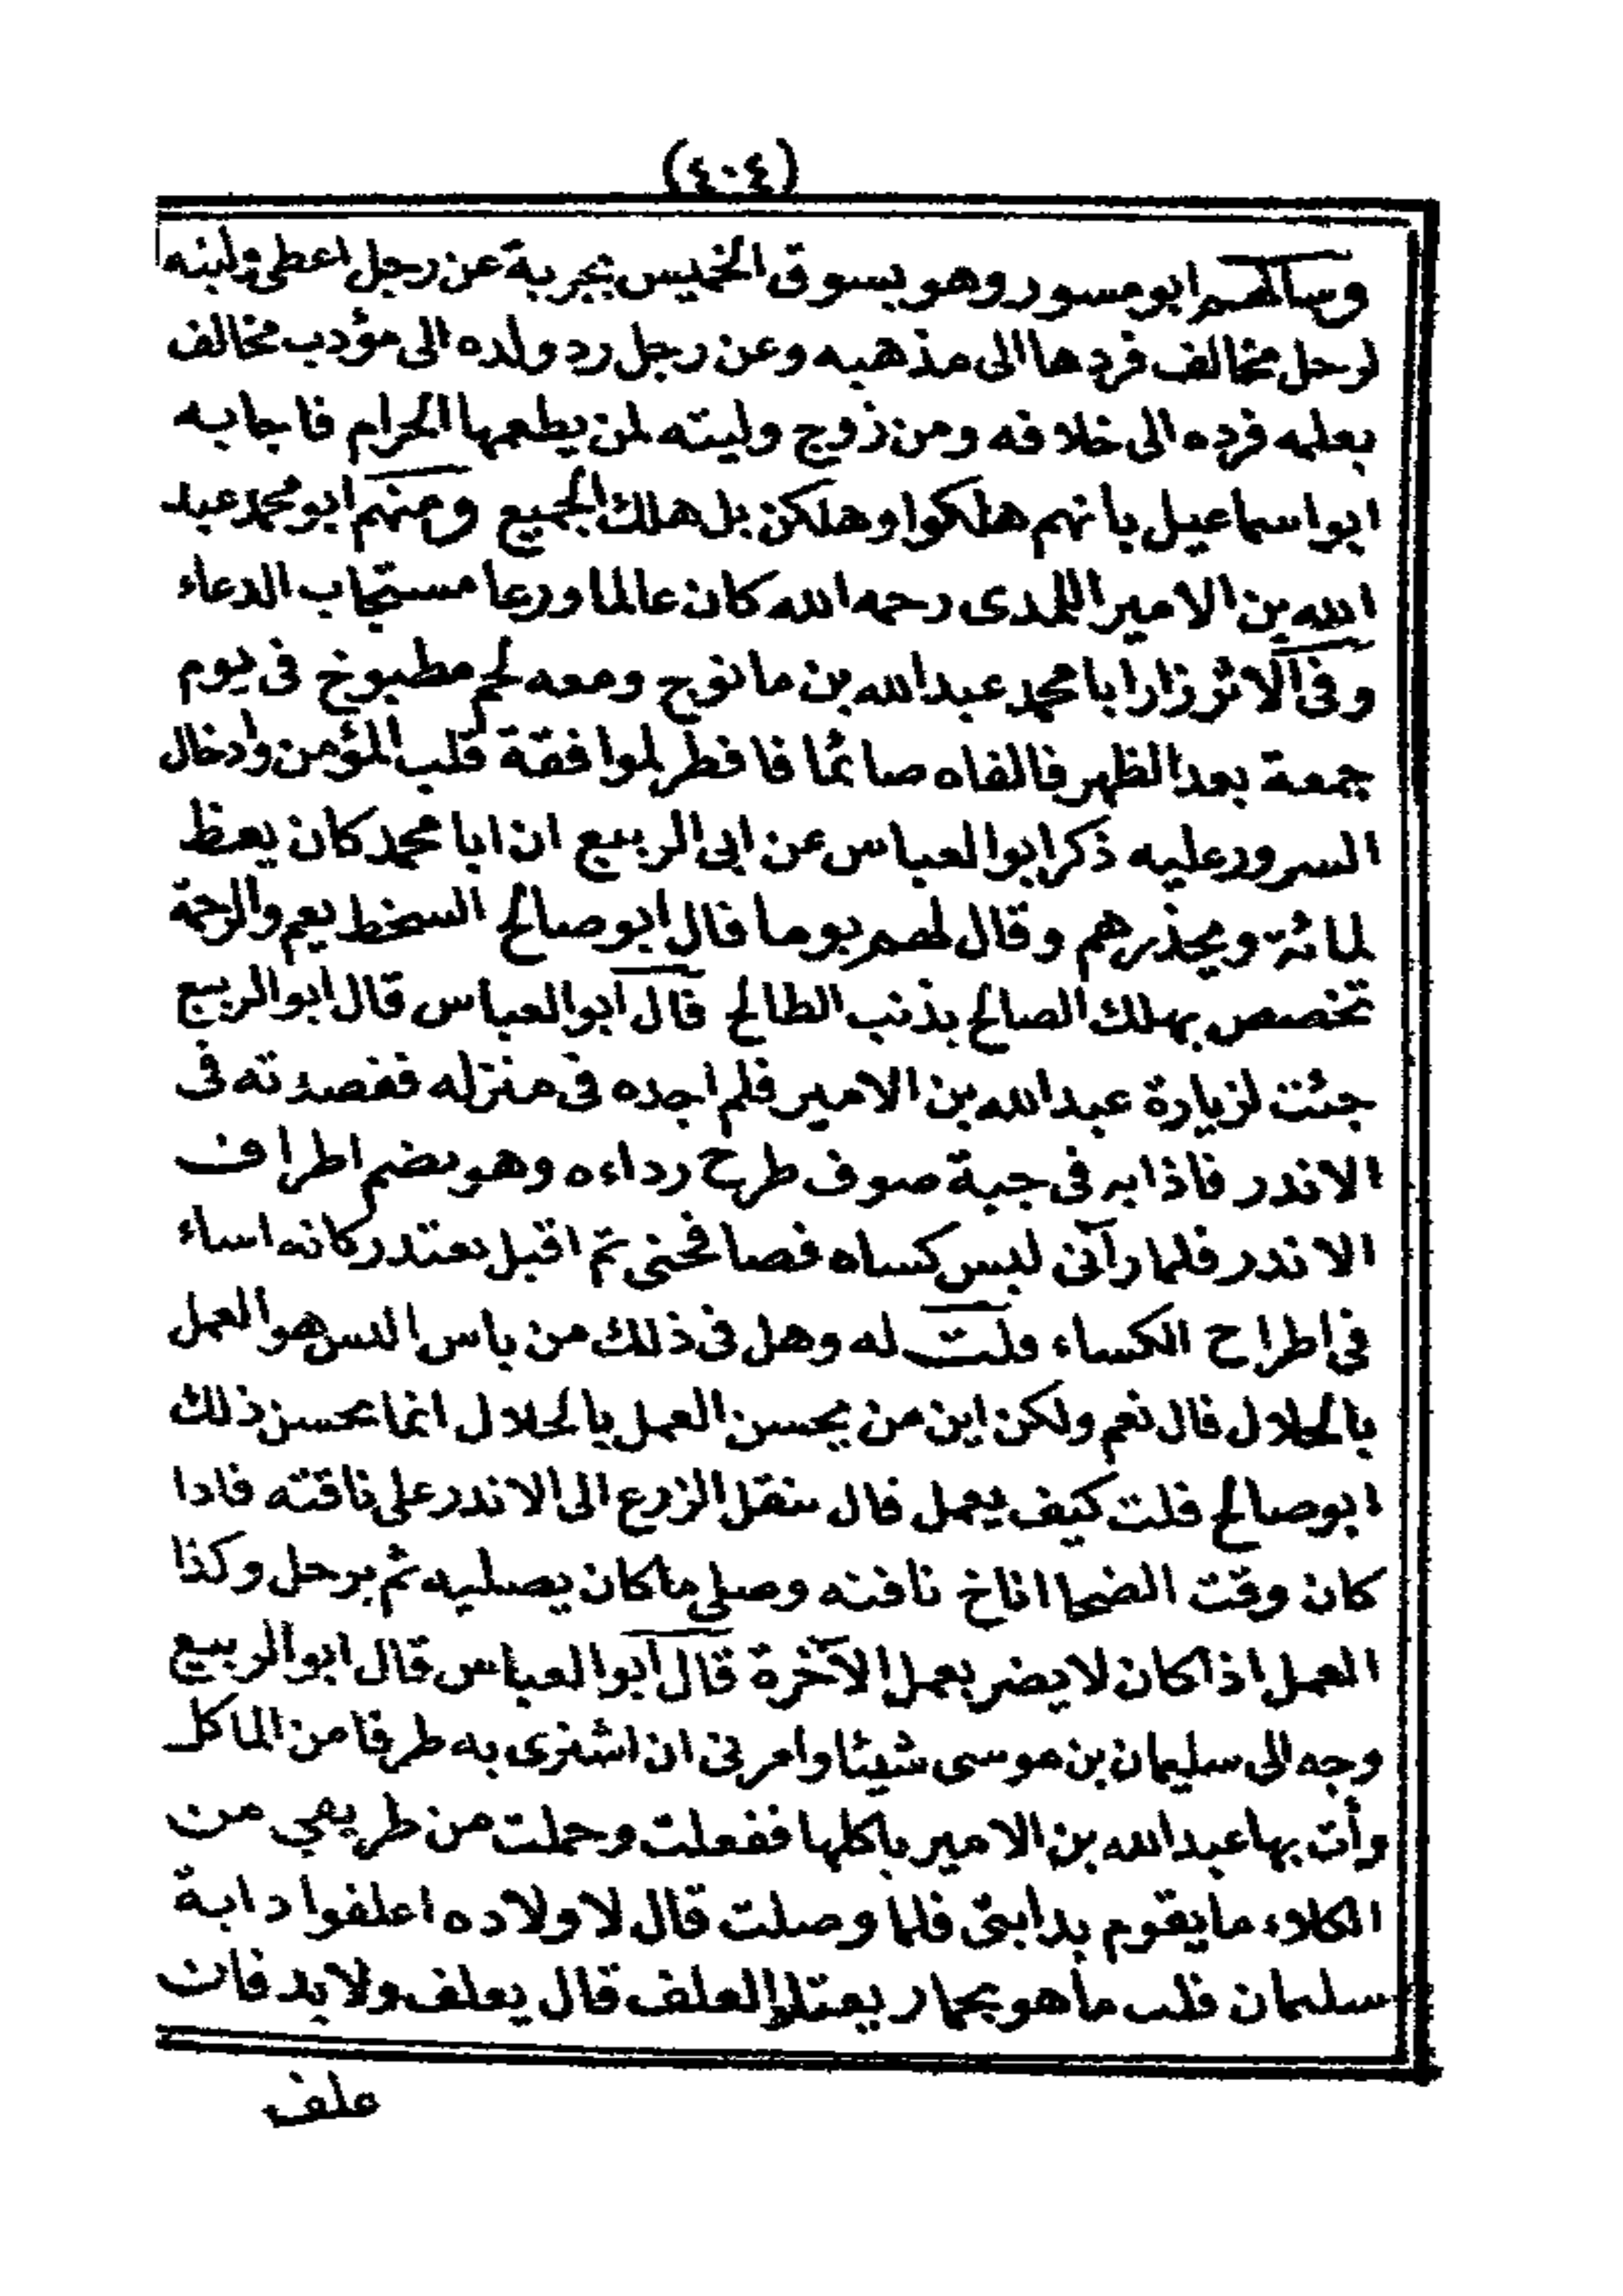 (٤٠٤)
وسالهم ابو مسور وهو بسوق الخميس بجربة عن رجل اعطى وليته
لرجل مخالف فردها الى مذهبه وعن رجل رد ولده الى مؤدب مخالف
يعلمه فرده الى خلافه ومن زوج وليته لمن يطعمها الحرام فاجابه
ابو اسماعيل بانهم هلكوا وهلكن بل هلك الجميع ومنهم ابو محمد عبد
الله بن الامير اللمدى رحمه الله كان عالما ورعا مستجاب الدعاء
وفى الاثر زار ابا محمد عبد الله بن مانوح ومعه لحم مطبوخ فى يوم
جمعة بعد الظهر فالفاه صائما فافطر لموافقة قلب المؤمن وادخال
السرور عليه ذكر ابو العباس عن ابى الربيع ان ابا محمد كان يعظ
لمائة ويحذرهم وقال لهم يوما قال ابو صالح السخط يعم والرحمة
تخصص يهلك الصالح بذنب الطالح قال ابو العباس قال ابو الربيع
جئت لزيارة عبد الله بن الامير فلم اجده فى منزله فقصدته فى
الاندر فاذا به فى جبة صوف طرح رداءه وهو يضم اطراف
الاندر فلما رآنى لبس كساه فصافحنى ثم اقبل يعتذر كانه اساء
فى اطراح الكساء قلت له وهل فى ذلك من باس اليس هو العمل
بالحلال قال نعم ولكن اين من يحسن العمل بالحلال انما يحسن ذلك
ابو صالح قلت كيف يعمل قال ينقل الزرع الى الاندر على ناقته فاذا
كان وقت الضحا اناخ ناقته وصلى ما كان يصليه ثم يرحل وكذا
العمل اذا كان لا يضر بعمل الآخرة قال ابو العباس قال ابو الربيع
وجه الى سليمان بن موسى شيئا وامرنى ان اشترى به طرفا من الماكل
وأت بها عبد الله بن الامير ياكلها ففعلت وحملت من طريقى من
الكلاء ما يقوم بدابتى فلما وصلت قال لاولاده اعلفوا دابة
سليمان قلت ما هو بحمار العلف قال يعلف ولا بد فان
علف